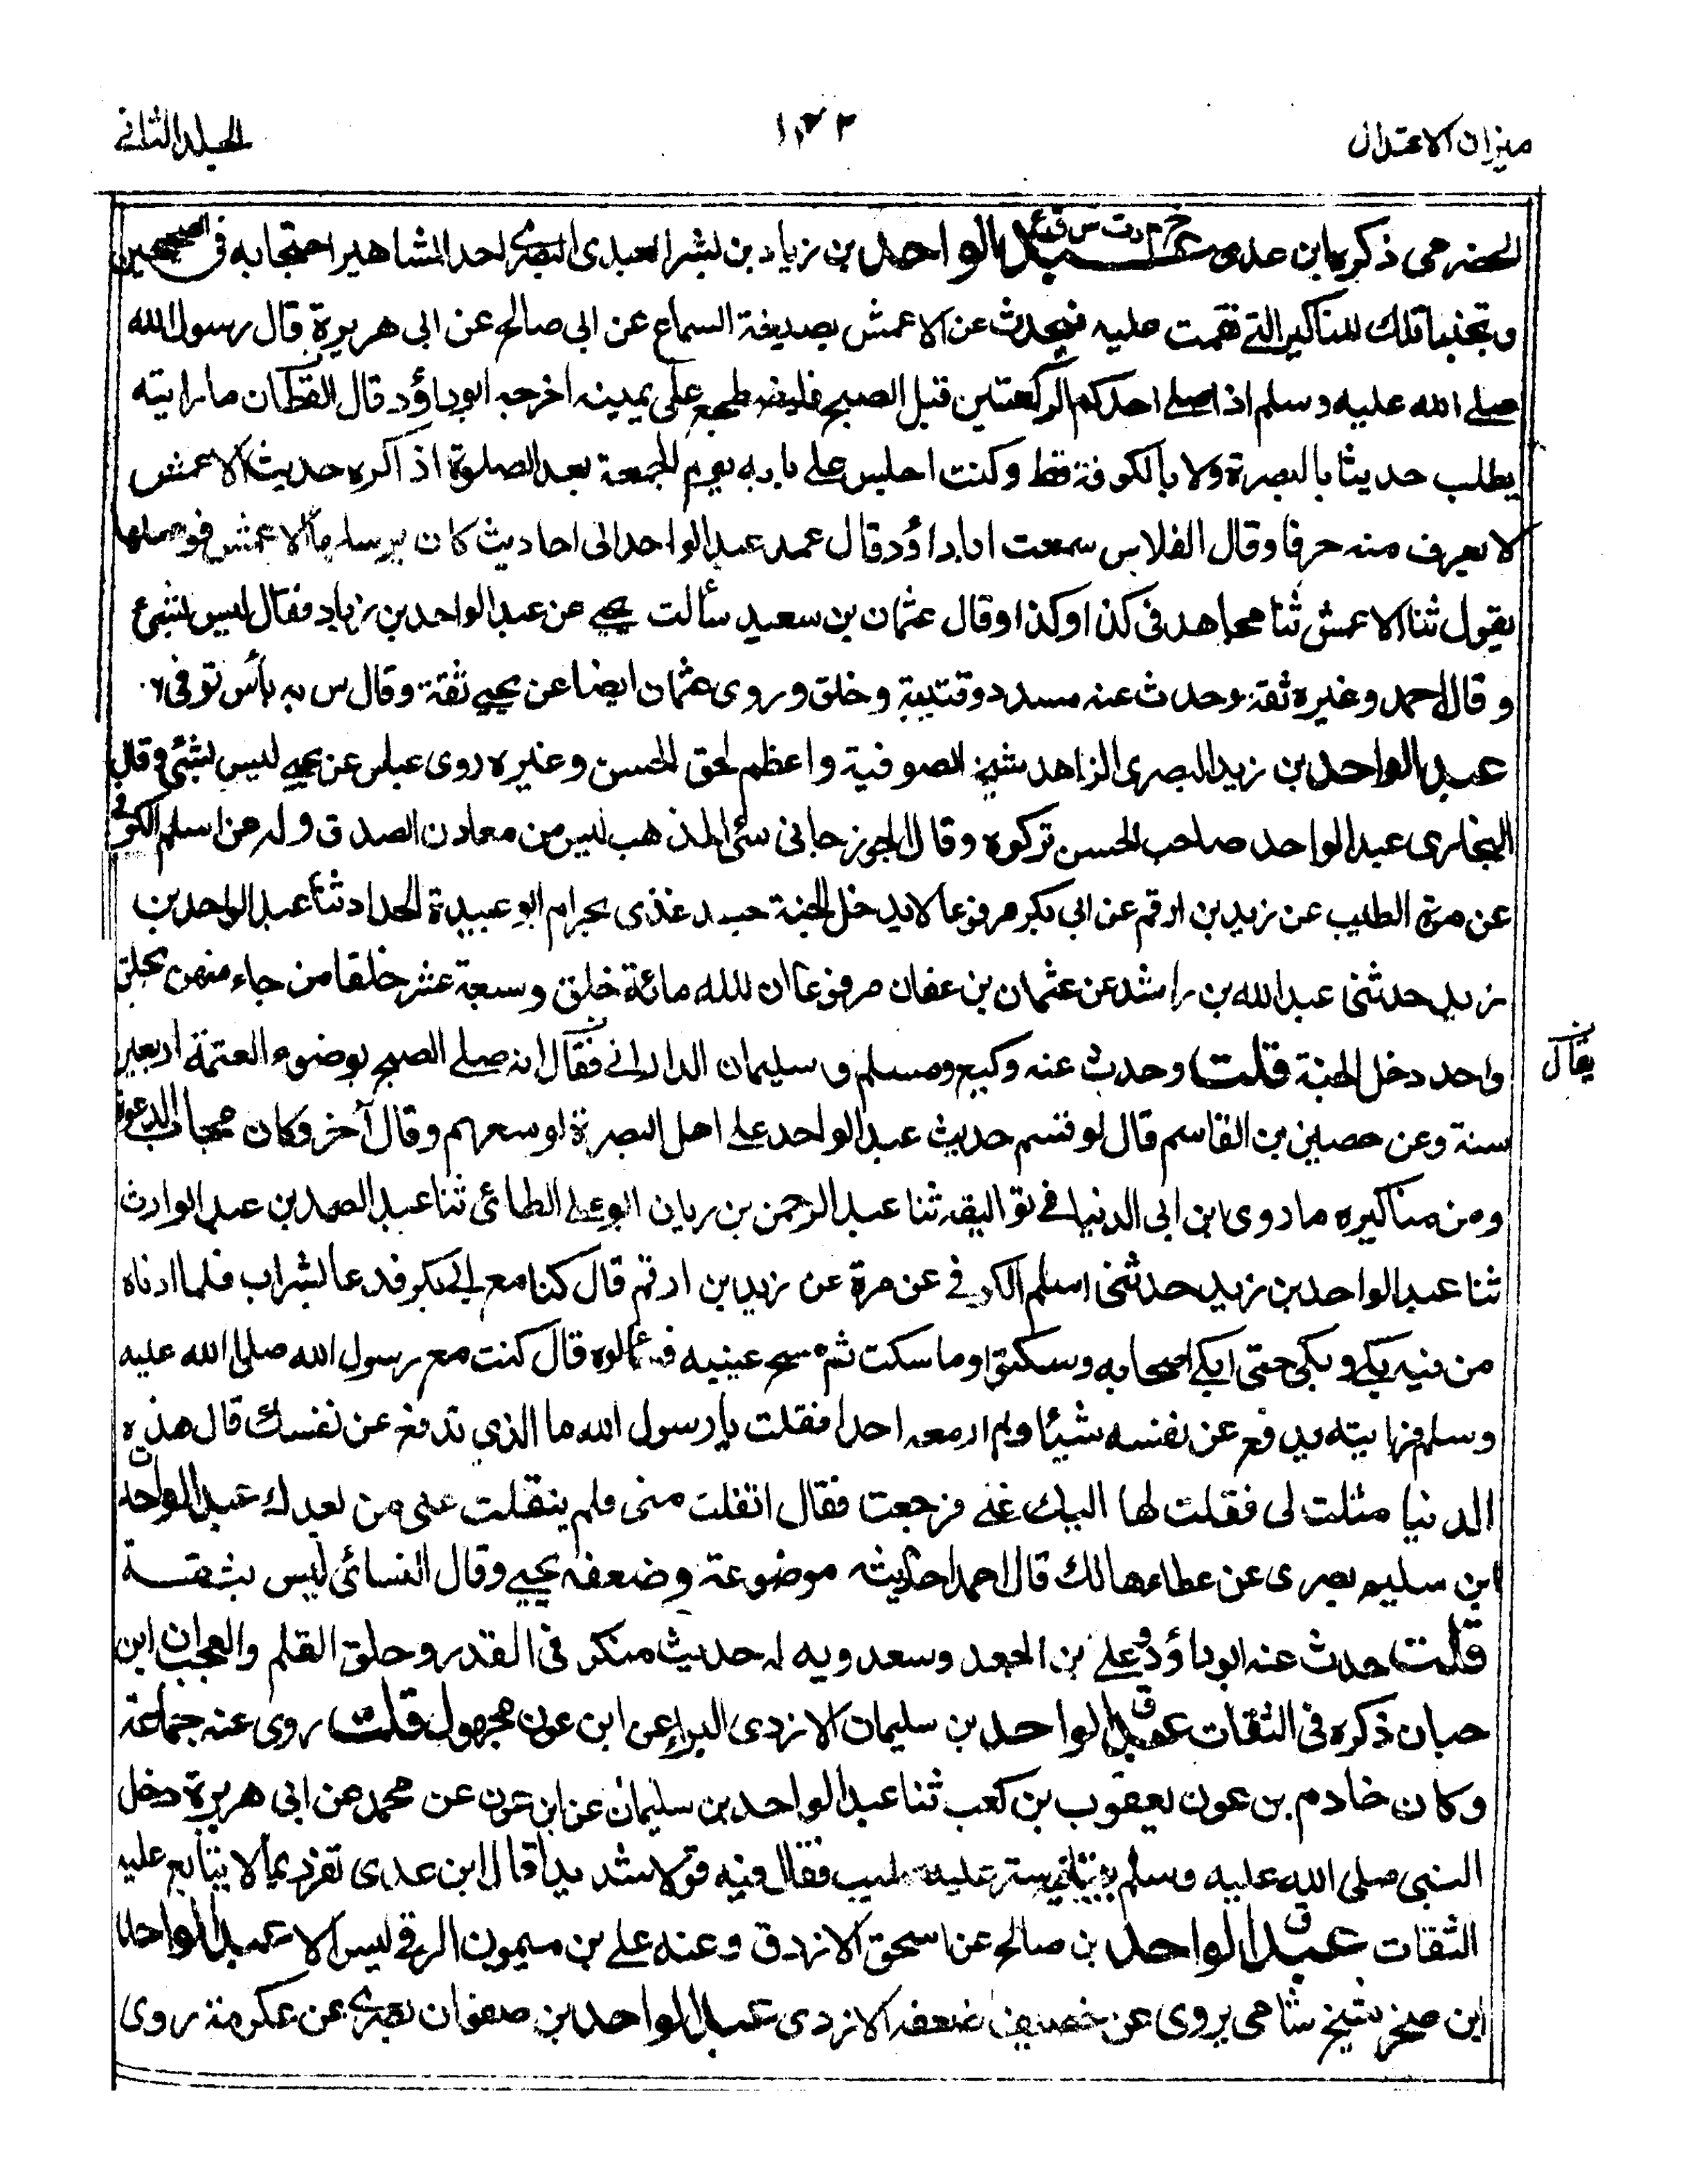 ميزان الاعتدال
الجلد الثاني
الحضرمى ذكره ابن عدى عبد الواحد بن زياد بن بشر العبدى البصرى احد المشاهير احتجا به فى الصحيحين
وتجنبا تلك المناكير التى نقمت عليه فيحدث عن الاعمش بصيغة السماع عن ابى صالح عن ابى هريرة قال رسول الله
صلى الله عليه وسلم اذا صلى احدكم الركعتين قبل الصبح فليضطجع على يمينه اخرجه ابوداؤد قال القطان ما رايته
يطلب حديثا بالبصرة ولا بالكوفة قط وكنت اجلس على بابه يوم الجمعة بعد الصلوة اذاكره حديث الاعمش
لا يعرف منه حرفا وقال الفلاس سمعت اباداؤد قال عمد عبد الواحد الى احاديث كان يرسلها الاعمش فوصلها
يقول ثنا الاعمش ثنا مجاهد فى كذا وكذا وقال عثمان بن سعيد سألت يحيى عن عبد الواحد بن زياد فقال ليس بشئ
وقال احمد وغيره ثقة وحدث عنه مسدد وقتيبة وخلق وروى عثمان ايضا عن يحيى ثقة وقال س به بأس توفى
عبد الواحد بن زيد البصرى الزاهد شيخ الصوفية واعظم لحق الحسن وغيره روى عباس عن يحيى ليس بشئ وقال
البخارى عبد الواحد صاحب الحسن تركوه وقال الجوزجانى سئ المذهب ليس من معادن الصدق وله عن اسلم الكوفى
عن مرة الطيب عن زيد بن ارقم عن ابى بكر مرفوعا لا يدخل الجنة جسد غذى بحرام ابو عبيدة الحداد ثنا عبد الواحد بن
زيد حدثنى عبد الله بن راشد عن عثمان بن عفان مرفوعا ان لله مائة خلق وسبعة عشر خلقا من جاء منهن بخلق
واحد دخل الجنة قلت وحدث عنه وكيع ومسلم و سليمان الدارانى فقال انه صلى الصبح بوضوء العتمة اربعين
يقال
سنة وعن حصين بن القاسم قال لو قسم حديث عبد الواحد على اهل البصرة لوسعهم وقال آخر وكان مجاب الدعوة
ومن مناكيره ما روى ابن ابى الدنيا فى تواليفه ثنا عبد الرحمن بن ريان ابو على الطائى ثنا عبد الصمد بن عبد الوارث
ثنا عبد الواحد بن زيد حدثنى اسلم الكوفى عن مرة عن زيد بن ارقم قال كنا مع ابى بكر فدعا بشراب فلما ادناه
من فيه بكى وبكى حتى ابكى اصحابه وسكتوا وما سكت ثم مسح عينيه فسألوه قال كنت مع رسول الله صلى الله عليه
وسلم فرايته يدفع عن نفسه شيئا ولم ار معه احدا فقلت يا رسول الله ما الذي تدفع عن نفسك قال هذه
الدنيا مثلت لى فقلت لها اليك عنى فرجعت فقال انفلت منى فلم ينفلت عنى من بعدك عبد الواحد
ابن سليم بصرى عن عطاء هالك قال احمد احاديثه موضوعة وضعفه يحيى وقال النسائى ليس بثقة
قلت حدث عنه ابوداؤد وعلى بن الجعد وسعدويه له حديث منكر فى القدر وخلق القلم والعجب ان ابن
حبان ذكره فى الثقات عبد الواحد بن سليمان الازدى البراء عن ابن عون مجهول قلت روى عنه جماعة
وكان خادم بن عون يعقوب بن كعب ثنا عبد الواحد بن سليمان عن ابن عون عن محمد عن ابى هريرة دخل
النبى صلى الله عليه وسلم ستر عليه صليب فقال فيه قولا شديدا قال ابن عدى تفرد بما لا يتابع عليه
الثقات عبد الواحد بن صالح عن اسحق الازرق وعنه على بن ميمون الرقى ليس الا عبد الواحد
ابن صخر شيخ شامى يروى عن خصيف ضعفه الازدى عبد الواحد بن صفوان بصرى عن عكرمة روى